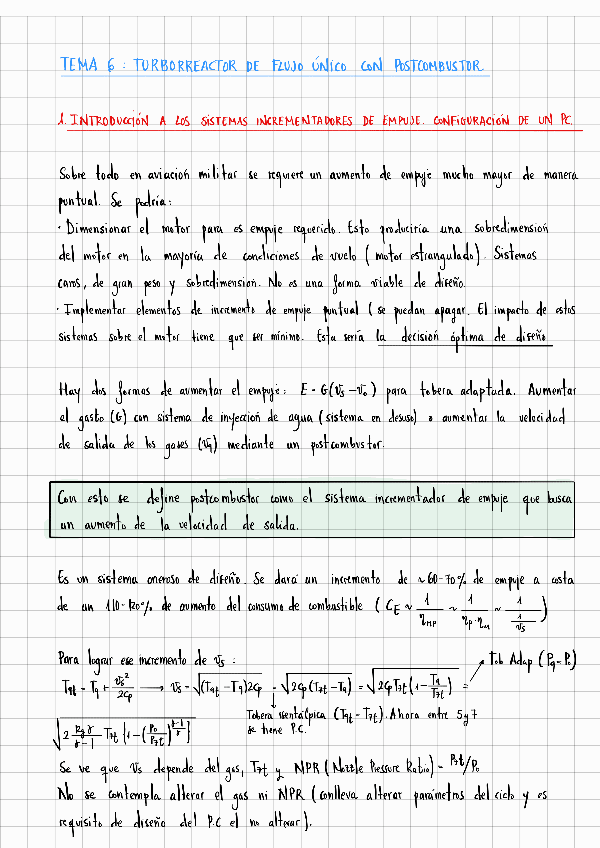 TEMA 6 : TURBORREACTOR DE FLUJO ÚNICO CON POSTCOMBUSTOR
1. INTRODUCCIÓN A LOS SISTEMAS INCREMENTADORES DE EMPUJE. CONFIGURACIÓN DE UN PC
Sobre todo en aviación militar se requiere un aumento de empuje mucho mayor de manera
puntual. Se podría:
· Dimensionar el motor para es empuje requerido. Esto produciría una sobredimension
del motor en la mayoría de condiciones de vuelo ( motor estrangulado). Sistemas
caros, de gran peso y sobredimension. No es una forma viable de diseño.
· Implementar elementos de incremento de empuje puntual ( se puedan apagar. El impacto de estos
sistemas sobre el motor tiene que ser mínimo. Esta sería la decisión óptima de diseño
Hay dos formas de aumentar el empuje: E = G(V₅-V₀) para tobera adaptada. Aumentar
el gasto (G) con sistema de inyeccion de agua (sistema en desuso) o aumentar la velocidad
de salida de los gases (V₉) mediante un postcombustor.
Con esto se define postcombustor como el sistema incrementador de empuje que busca
un aumento de la velocidad de salida.
Es un sistema oneroso de diseño. Se dará un incremento de ~60-70% de empuje a costa
de un 110-120% de aumento del consumo de combustible ( C_E ~ 1/η_MP ~ 1/(η_P·η_M) ~ 1/(1/V₅) )
Para lograr ese incremento de V₅ :
T₉t = T₉ + V₅²/2Cp → V₅ = √((T₉t-T₉)2Cp) = √(2Cp(T₇t-T₉)) = √(2CpT₇t(1-T₉/T₇t)) = Tob Adap (P₉=P₀)
Tobera isentálpica (T₉t = T₇t). Ahora entre 5 y 7
se tiene P.C.
√(2 R₉γ/(γ-1) T₇t {1-(P₀/P₇t)^((γ-1)/γ)})
Se ve que V₅ depende del gas, T₇t y NPR ( Nozzle Pressure Ratio) = P₇t/P₀
No se contempla alterar el gas ni NPR ( conlleva alterar parámetros del ciclo y es
requisito de diseño del P.C el no alterar).